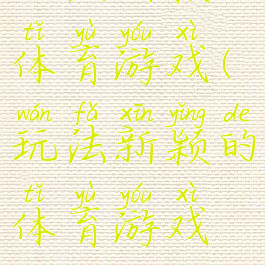 tǐ yù yóu xì
体育游戏(
wán fǎ xīn yǐng de
玩法新颖的
tǐ yù yóu xì
体育游戏